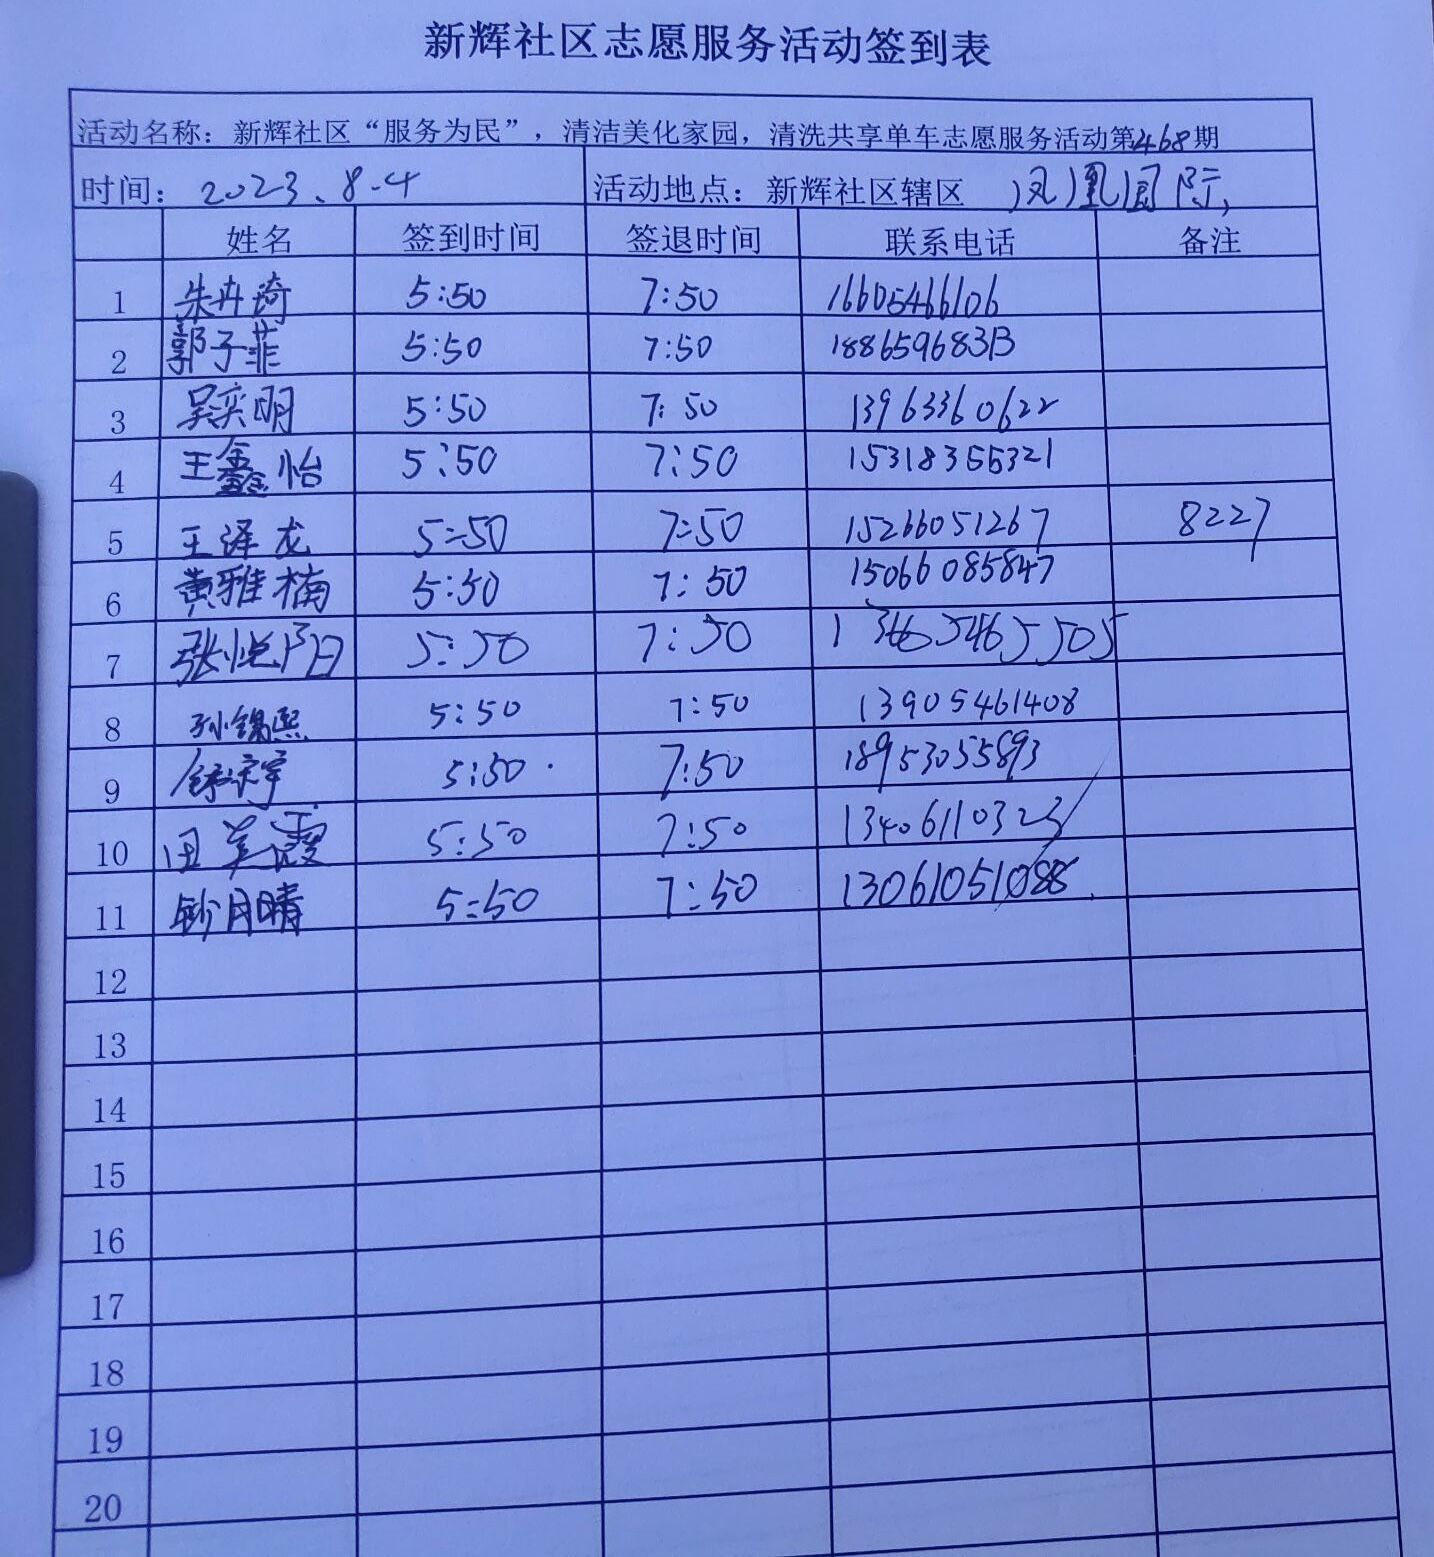 新辉社区志愿服务活动签到表
活动名称：新辉社区“服务为民”，清洁美化家园，清洗共享单车志愿服务活动第468期
时间：2023.8.4 活动地点：新辉社区辖区 凤凰园
姓名 签到时间 签退时间 联系电话 备注
1 朱卉琦 5:50 7:50 16605466106
2 郭子菲 5:50 7:50
3 吴奕明 5:50 7:50 13963360622
4 王鑫怡 5:50 7:50 15318355321
5 王泽龙 5:50 7:50 15266051267 8227
6 黄雅楠 5:50 7:50 15066085847
7 张悦阳 5:50 7:50
8 孙锦熙 5:50 7:50 13905461408
9 5:50 7:50 18953055893
10 田美霞 5:50 7:50 13406110323
11 月晴 5:50 7:50 13061051088
12
13
14
15
16
17
18
19
20